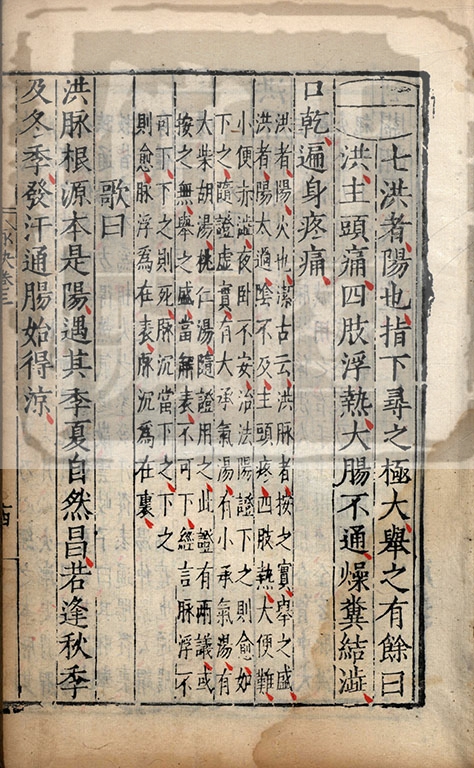 七洪者陽也指下尋之極大舉之有餘曰
洪主頭痛四肢浮熱大腸不通燥糞結澁
口乾遍身疼痛
洪者陽火也潔古云洪脉者按之實舉之盛
洪者陽太過陰不及主頭疼四肢熱大便難
小便赤澁夜卧不安治法陽證下之則愈如
下之隨證虚實有大承氣湯有小承氣湯有
大柴胡湯桃仁湯隨證用之此證有兩議或
按之無舉之盛當解表不可下經言脉浮不
可下下之則死脉沉當下之下之
則愈脉浮爲在表脉沉爲在裏
歌曰
洪脉根源本是陽遇其季夏自然昌若逢秋季
及冬季發汗通腸始得涼